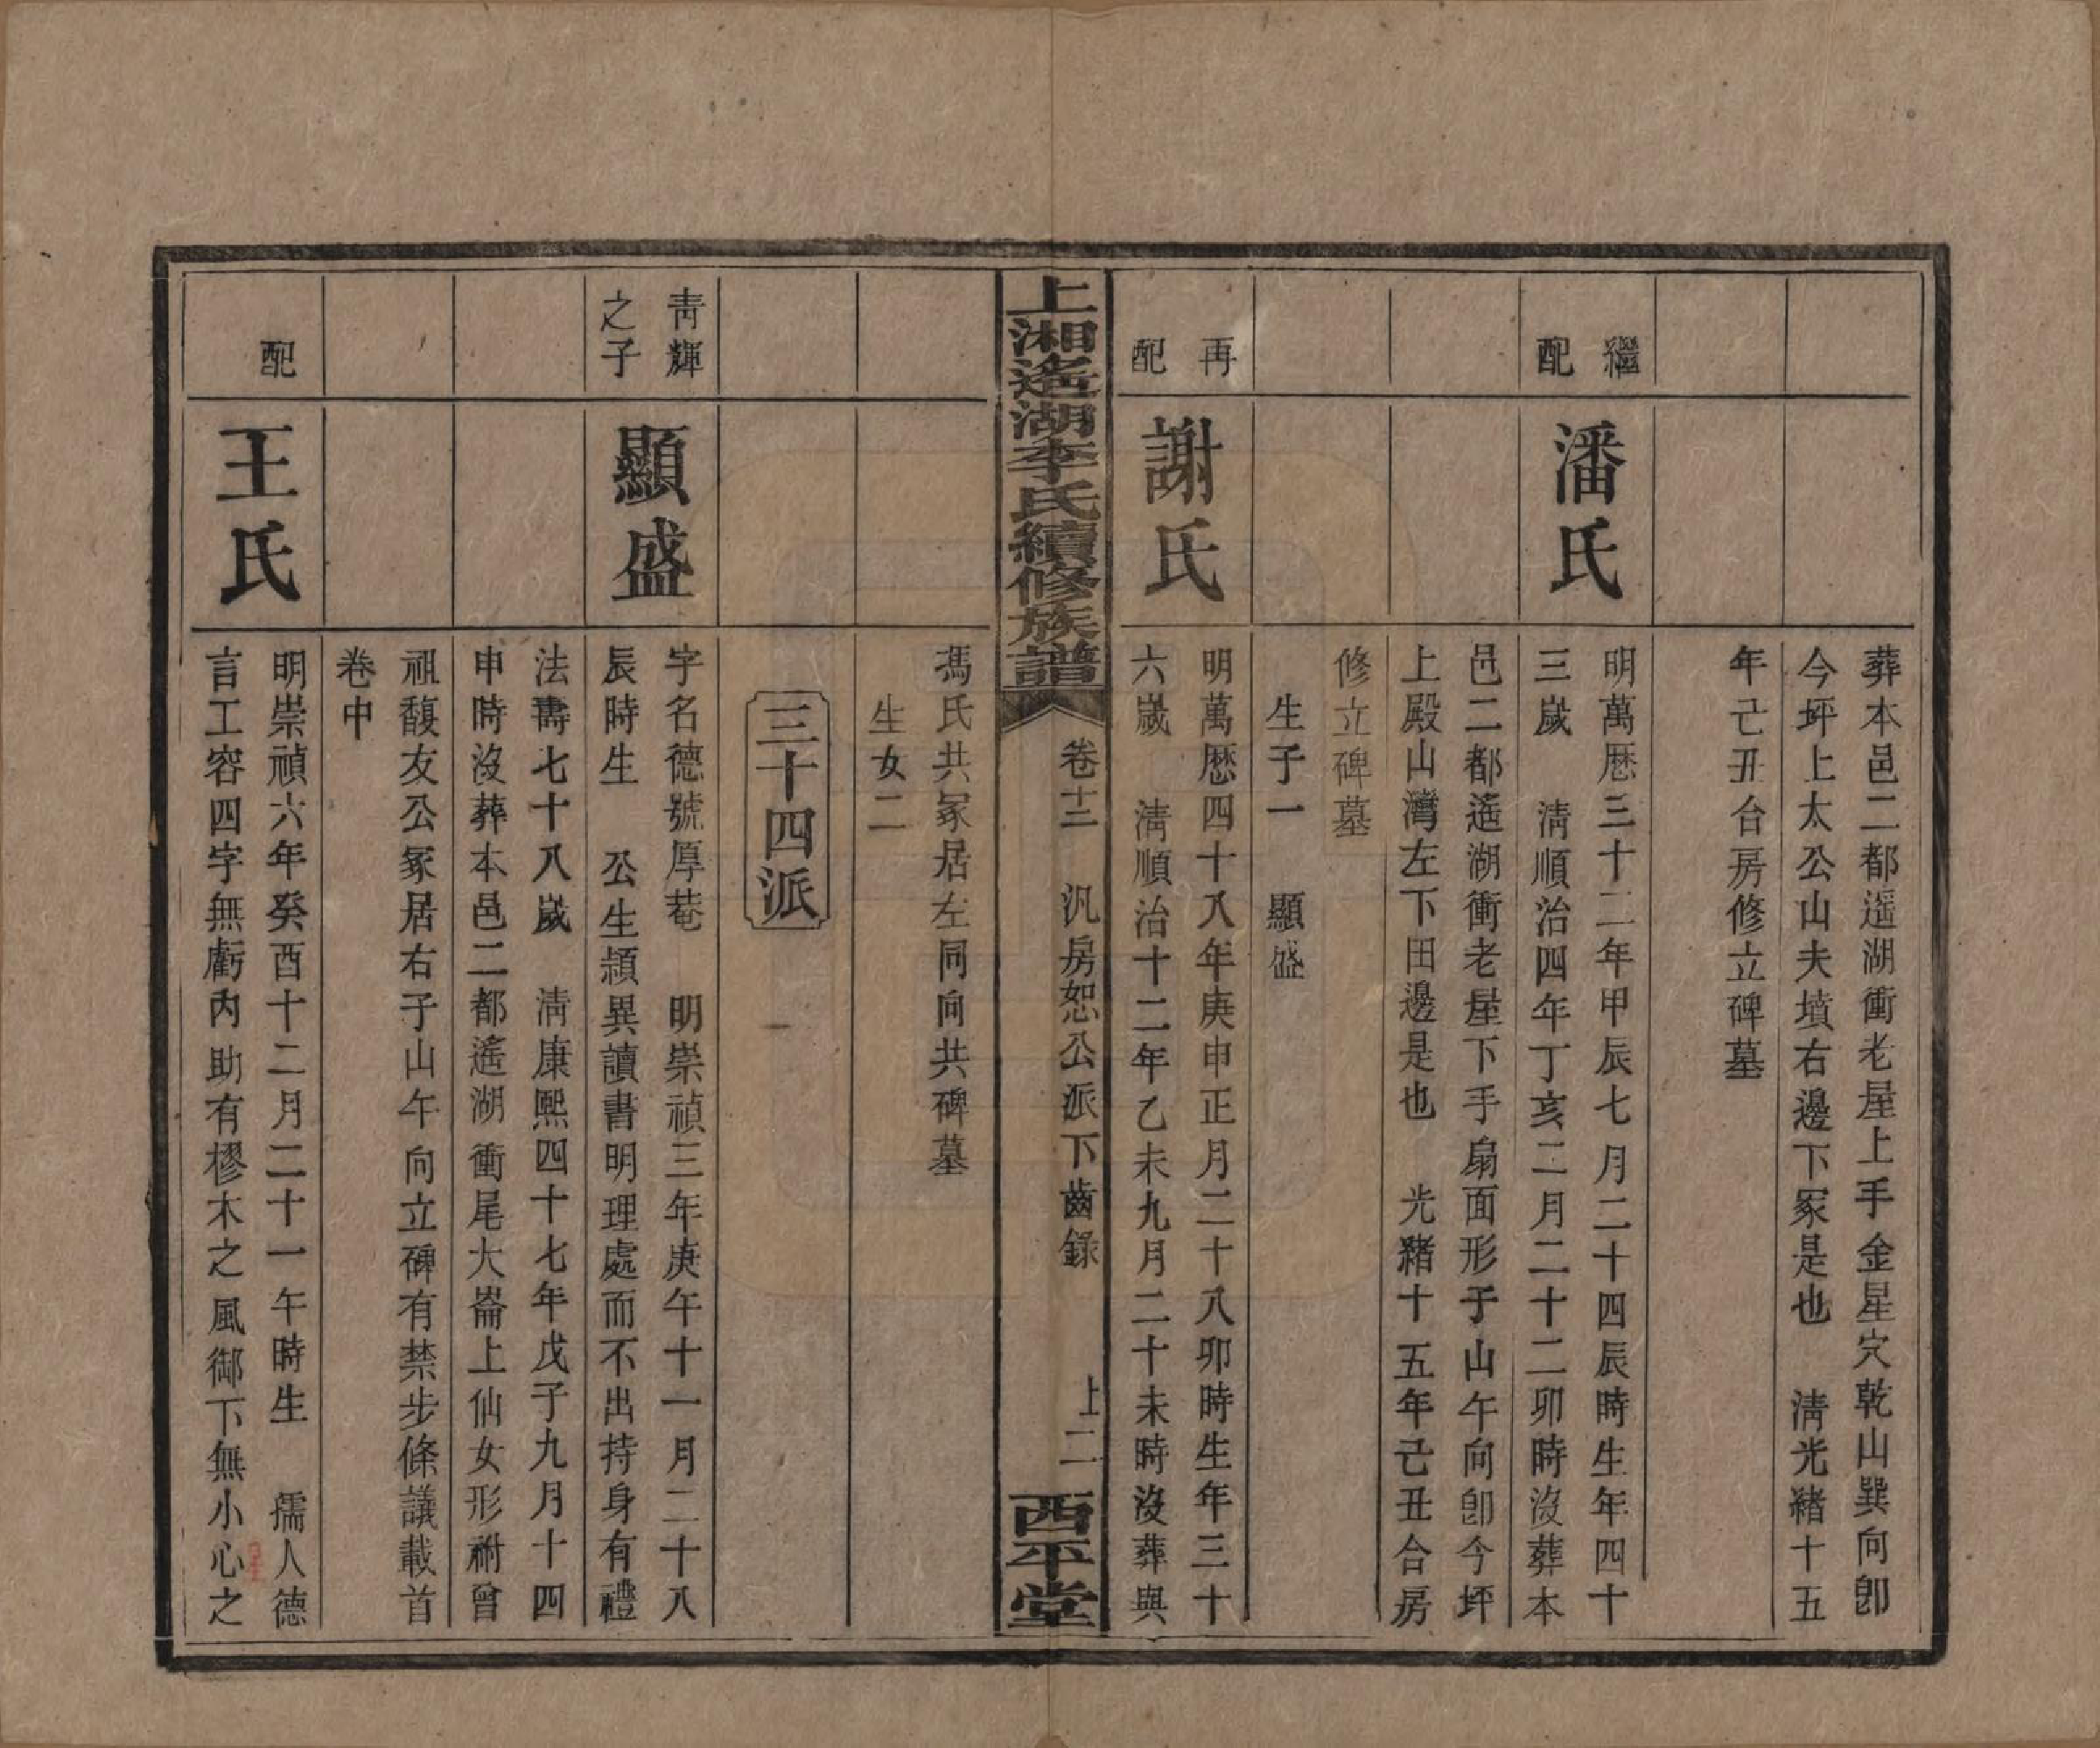 葬本邑二都遥湖衝老屋上手金星穴乾山巽向卽
今坪上太公山夫墳右邊下冢是也　清光緒十五
年己丑合房修立碑墓
繼配
潘氏
明萬厯三十二年甲辰七月二十四辰時生年四十
三歲　清順治四年丁亥二月二十二卯時沒葬本
邑二都遥湖衝老屋下手扇面形子山午向卽今坪
上殿山灣左下田邊是也　光緒十五年己丑合房
修立碑墓
生子一　顯盛
再配
謝氏
明萬厯四十八年庚申正月二十八卯時生年三十
六歲　清順治十二年乙未九月二十未時沒葬與
上湘遥湖李氏續修族譜
卷十二　汎房恕公派下齒錄　上二
西平堂
馮氏共冢居左同向共碑墓
生女二
三十四派
青輝之子
顯盛
字名德號厚菴　明崇禎三年庚午十一月二十八
辰時生　公生頴異讀書明理處而不出持身有禮
法壽七十八歲　清康熙四十七年戊子九月十四
申時沒葬本邑二都遥湖衝尾大崙上仙女形祔曾
祖馥友公冢居右子山午向立碑有禁步條議載首
卷中
配
王氏
明崇禎六年癸酉十二月二十一午時生　孺人德
言工容四字無虧內助有樛木之風御下無小心之